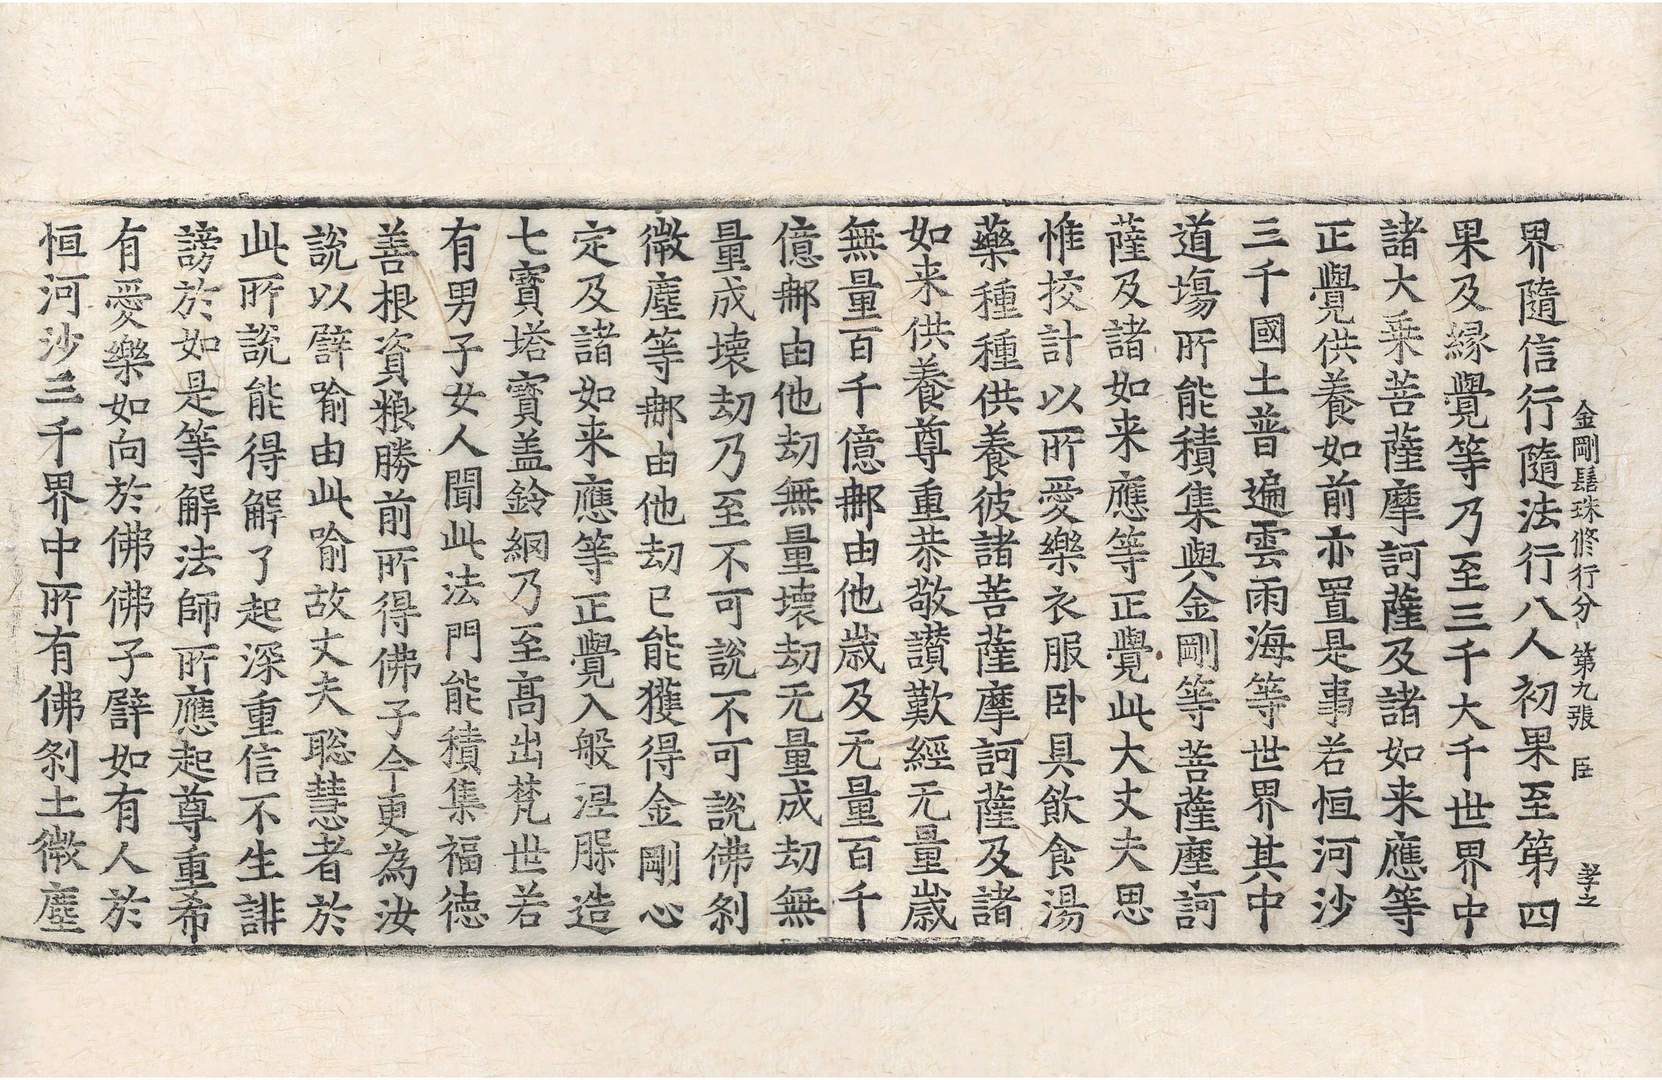 金剛髻珠修行分 第九張 臣 孝之
界隨信行隨法行八人初果至第四
果及緣覺等乃至三千大千世界中
諸大乘菩薩摩訶薩及諸如来應等
正覺供養如前亦置是事若恒河沙
三千國土普遍雲雨海等世界其中
道場所能積集與金剛等菩薩摩訶
薩及諸如来應等正覺此大丈夫思
惟挍計以所愛樂衣服卧具飲食湯
藥種種供養彼諸菩薩摩訶薩及諸
如来供養尊重恭敬讃歎經无量歲
無量百千億那由他歲及无量百千
億那由他劫無量壞劫无量成劫無
量成壞劫乃至不可說不可說佛刹
微塵等那由他劫已能獲得金剛心
定及諸如来應等正覺入般涅縣造
七寶塔寶盖鈴網乃至高出梵世若
有男子女人聞此法門能積集福德
善根資粮勝前所得佛子今更為汝
說以譬喻由此喻故丈夫聡慧者於
此所說能得解了起深重信不生誹
謗於如是等解法師所應起尊重希
有愛樂如向於佛佛子譬如有人於
恒河沙三千界中所有佛刹土微塵